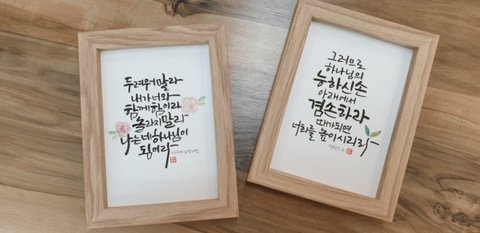 두려워 말라
내가 너와
함께 함이라
놀라지 말라
나는 네 하나님이
됨이라
그러므로
하나님의
능하신 손
아래에서
겸손하라
때가 되면
너희를 높이시리라